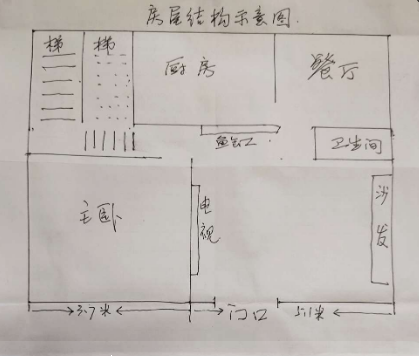 房屋结构示意图
梯
梯
厨房
餐厅
鱼缸
卫生间
主卧
电视
沙发
3.7米
门口
5.1米